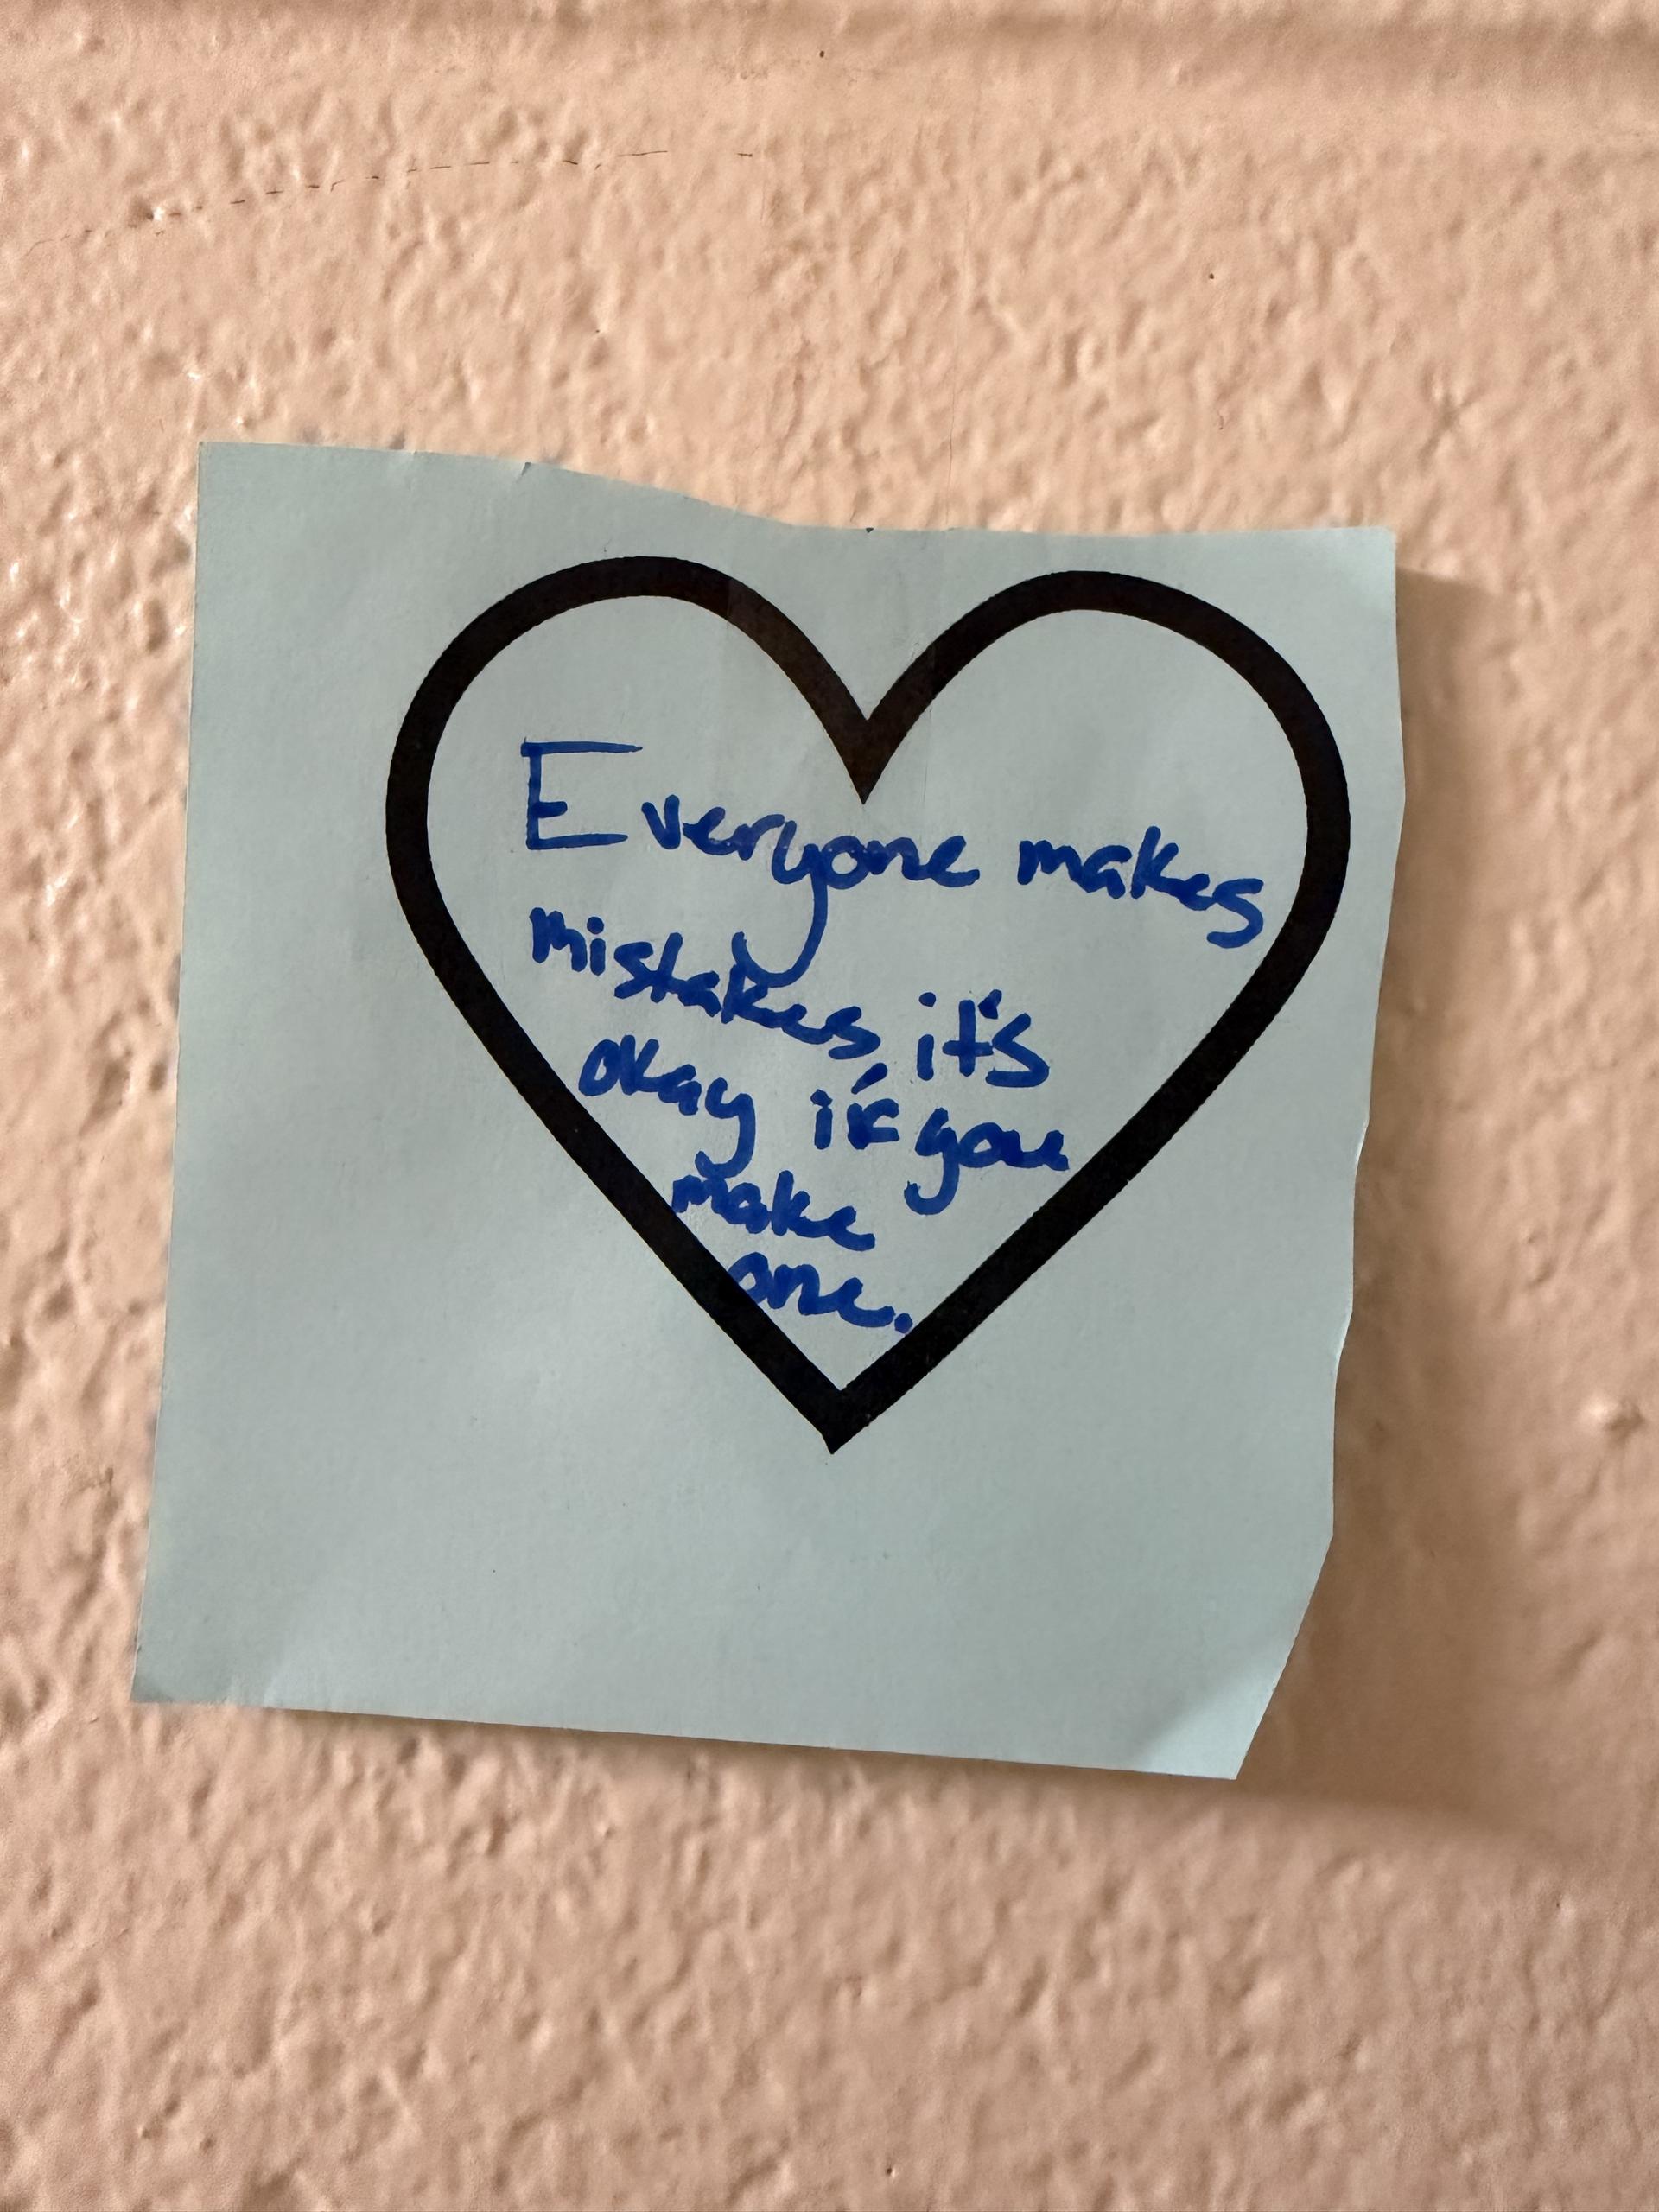 Everyone makes
mistakes, it's
okay if you
make
one.